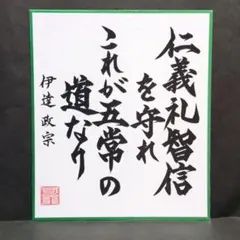 仁義礼智信
を守れ
これが五常の
道なり
伊達政宗